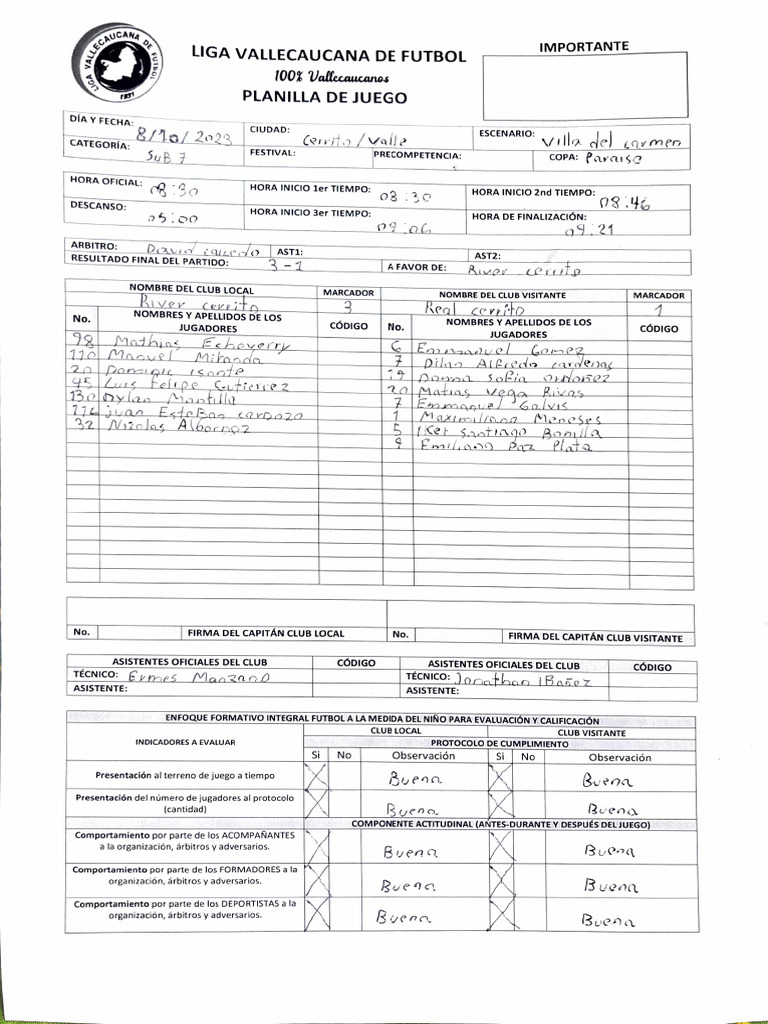 LIGA VALLECAUCANA DE FUTBOL
1931
LIGA VALLECAUCANA DE FUTBOL
100% Vallecaucanos
PLANILLA DE JUEGO
IMPORTANTE
DÍA Y FECHA: 8/10/2023 CIUDAD: Cerrito/Valle ESCENARIO: Villa del carmen
CATEGORÍA: SUB 7 FESTIVAL: PRECOMPETENCIA: COPA: Paraiso
HORA OFICIAL: 08:30 HORA INICIO 1er TIEMPO: 08:30 HORA INICIO 2nd TIEMPO: 08:46
DESCANSO: 05:00 HORA INICIO 3er TIEMPO: 09:06 HORA DE FINALIZACIÓN: 09:21
ARBITRO: David AST1: AST2:
RESULTADO FINAL DEL PARTIDO: 3-1 A FAVOR DE: River cerrito
NOMBRE DEL CLUB LOCAL MARCADOR NOMBRE DEL CLUB VISITANTE MARCADOR
River cerrito 3 Real cerrito 1
No. NOMBRES Y APELLIDOS DE LOS JUGADORES CÓDIGO No. NOMBRES Y APELLIDOS DE LOS JUGADORES CÓDIGO
98 Mathias Echeverry 6 Emmanuel Gomez
110 Manuel Miranda 7 Dilan Alfredo cardenas
20 Dominic 19 Donna Sofia ordoñez
45 Luis Felipe Gutierrez 20 Matias Vega Rivas
130 Dylan Montilla 7 Emmanuel Galvis
116 juan Esteban cardozo 1 Maximiliano Meneses
32 Nicolas Albornoz 5 IKer Santiago Bonilla
9 Emiliano Paz Plata
No. FIRMA DEL CAPITÁN CLUB LOCAL No. FIRMA DEL CAPITÁN CLUB VISITANTE
ASISTENTES OFICIALES DEL CLUB CÓDIGO ASISTENTES OFICIALES DEL CLUB CÓDIGO
TÉCNICO: Ermes Manzano TÉCNICO: Jonathan IBañez
ASISTENTE: ASISTENTE:
ENFOQUE FORMATIVO INTEGRAL FUTBOL A LA MEDIDA DEL NIÑO PARA EVALUACIÓN Y CALIFICACIÓN
INDICADORES A EVALUAR CLUB LOCAL CLUB VISITANTE
PROTOCOLO DE CUMPLIMIENTO
Si No Observación Si No Observación
Presentación al terreno de juego a tiempo X Buena X Buena
Presentación del número de jugadores al protocolo (cantidad) X Buena X Buena
COMPONENTE ACTITUDINAL (ANTES-DURANTE Y DESPUÉS DEL JUEGO)
Comportamiento por parte de los ACOMPAÑANTES a la organización, árbitros y adversarios. X Buena X Buena
Comportamiento por parte de los FORMADORES a la organización, árbitros y adversarios. X Buena X Buena
Comportamiento por parte de los DEPORTISTAS a la organización, árbitros y adversarios. X Buena X Buena